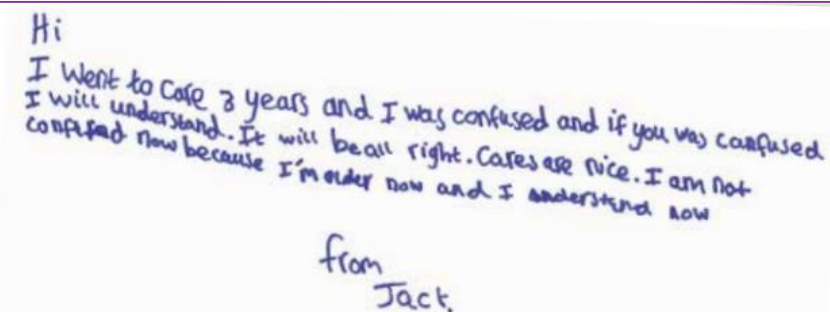 Hi
I went to Care 3 years and I was confused and if you was confused
I will understand. It will be all right. Cares are nice. I am not
confused now because I'm older now and I understand now
from
Jack.